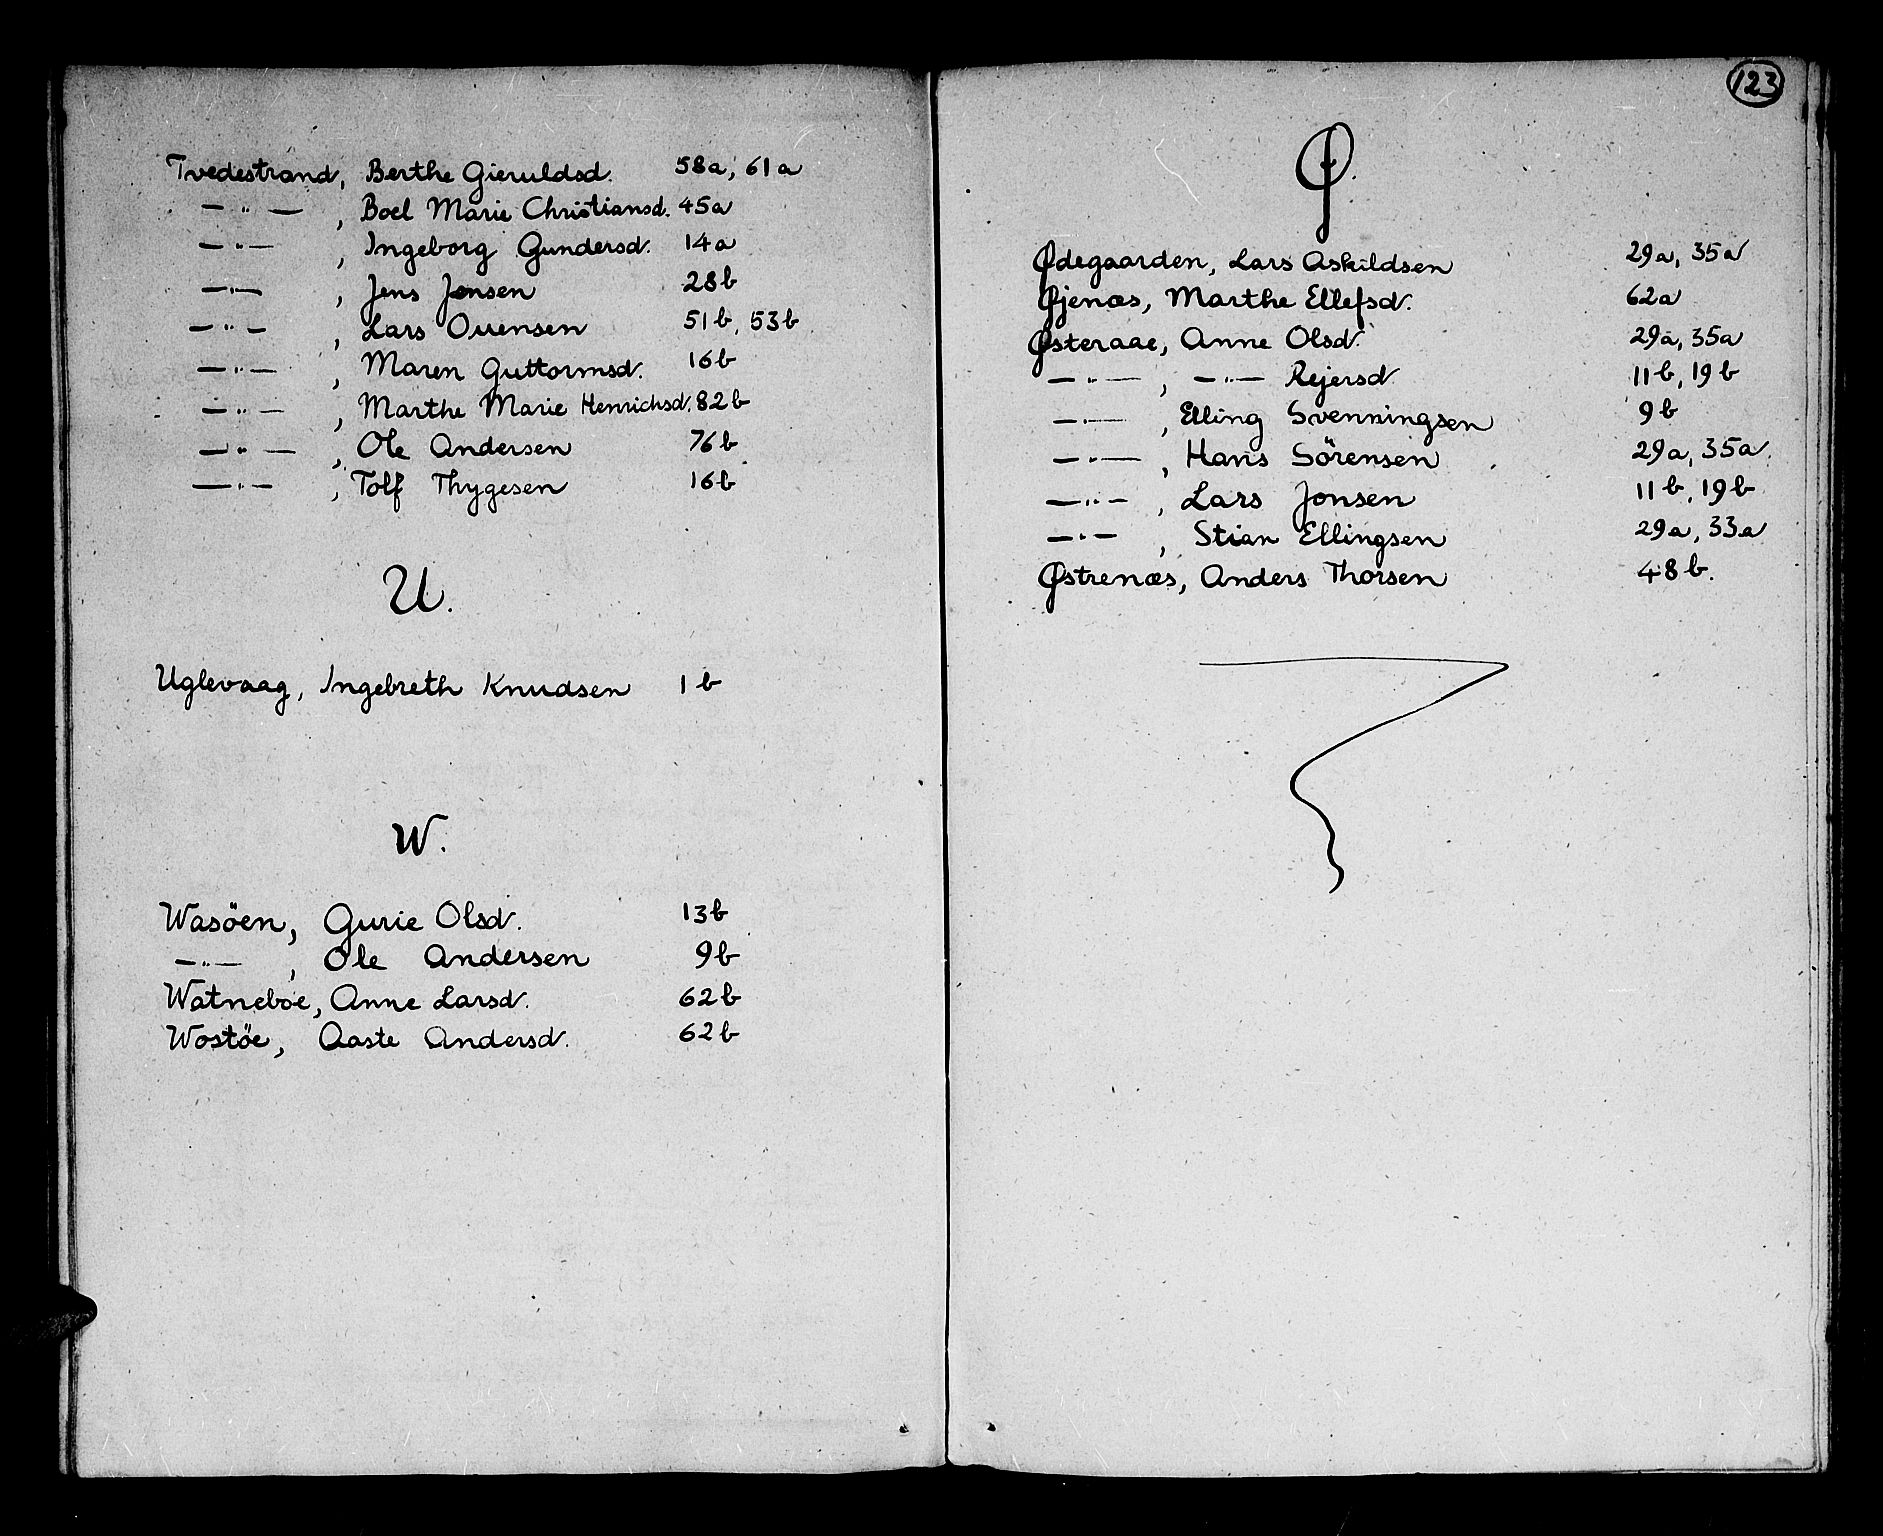 Tvedestrand, Berthe Gieruldsd. 58a, 61a
— " — , Boel Marie Christiansd. 45a
— " — , Ingeborg Gundersd. 14a
— " — , Jens Jensen 28b
— " — , Lars Ouensen 51b, 53b
— " — , Maren Guttormsd. 16b
— " — , Marthe Marie Henrichsd. 82b
— " — , Ole Andersen 76b
— " — , Tolf Thygesen 16b
U.
Uglevaag, Ingebreth Knudsen 1b
W.
Wasöen, Gurie Olsd. 13b
— " — , Ole Andersen 9b
Watneboe, Anne Larsd. 62b
Wostöe, Aaste Andersd. 62b
123
Ø.
Ødegaarden, Lars Askildsen 29a, 35a
Øjenæs, Marthe Ellefsd. 62a
Østeraae, Anne Olsd. 29a, 35a
— " — , — " — Rejersd. 11b, 19b
— " — , Elling Svenningsen 9b
— " — , Hans Sörensen 29a, 35a.
— " — , Lars Jonsen 11b, 19b
— " — , Stian Ellingsen 29a, 33a
Østrenæs, Anders Thorsen 48b.